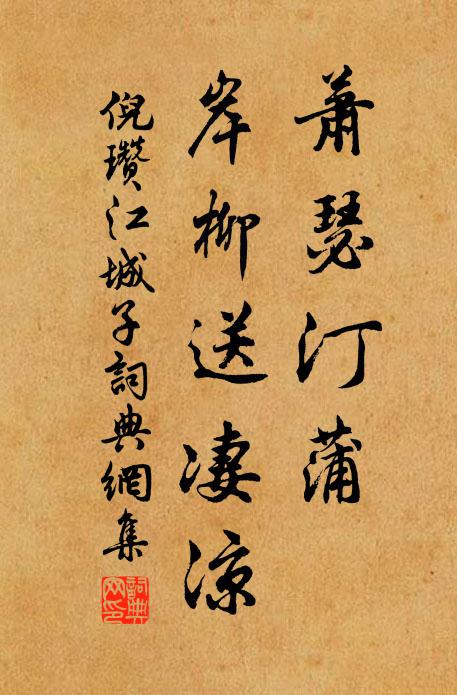 蕭瑟汀蒲
岸柳送淒涼
倪瓚江城子詞典網集
詞典網印